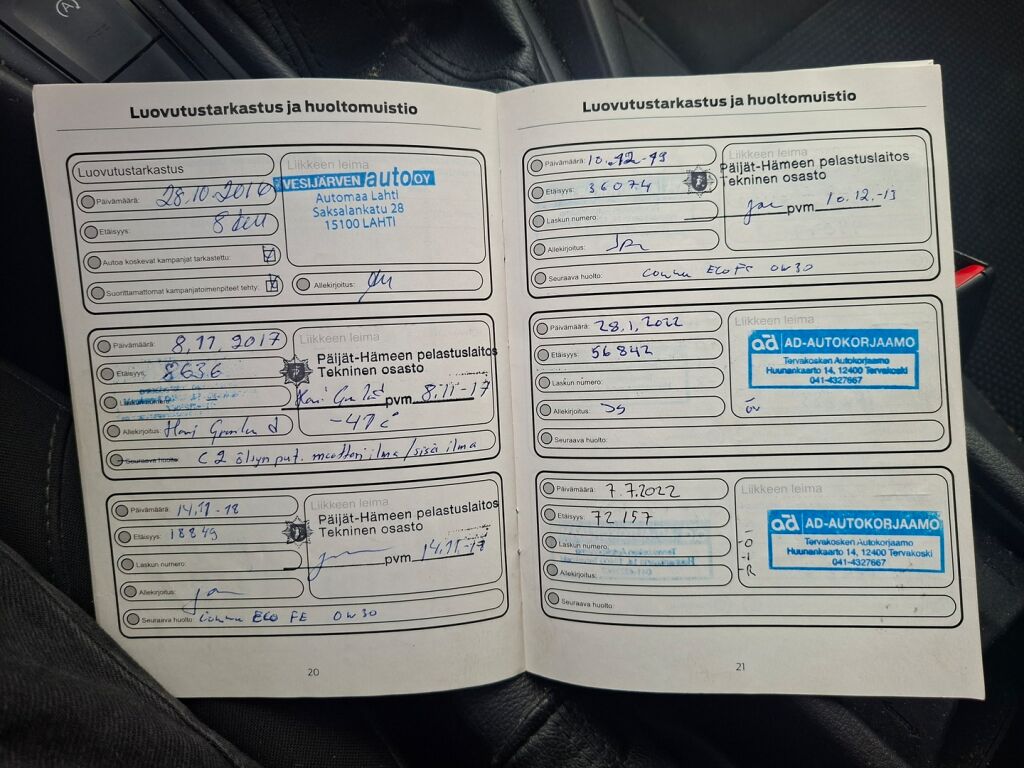 Luovutustarkastus ja huoltomuistio
Luovutustarkastus
Liikkeen leima
Päivämäärä: 28.10-2016
VESIJÄRVEN auto OY
Automaa Lahti
Saksalankatu 28
15100 LAHTI
Etäisyys: 8
Autoa koskevat kampanjat tarkastettu:
Suorittamattomat kampanjatoimenpiteet tehty:
Allekirjoitus:
Päivämäärä: 8.11.2017
Liikkeen leima
Etäisyys: 8636
Päijät-Hämeen pelastuslaitos
Tekninen osasto
Laskun numero:
pvm 8.11-17
Allekirjoitus:
Seuraava huolto: C2 öljyn put. moottori ilma/sisä ilma
Päivämäärä: 14.11-18
Liikkeen leima
Etäisyys: 18849
Päijät-Hämeen pelastuslaitos
Tekninen osasto
Laskun numero:
pvm 14.11-18
Allekirjoitus:
Seuraava huolto: ECO FE 0W30
20
Luovutustarkastus ja huoltomuistio
Päivämäärä: 10.12-19
Liikkeen leima
Etäisyys: 36074
Päijät-Hämeen pelastuslaitos
Tekninen osasto
Laskun numero:
pvm 10.12.-13
Allekirjoitus:
Seuraava huolto: ECO FE 0W30
Päivämäärä: 28.1.2022
Liikkeen leima
Etäisyys: 56842
ad AD-AUTOKORJAAMO
Tervakosken Autokorjaamo
Huunankaarto 14, 12400 Tervakoski
041-4327667
Laskun numero:
Allekirjoitus:
Seuraava huolto:
Päivämäärä: 7.7.2022
Liikkeen leima
Etäisyys: 72157
ad AD-AUTOKORJAAMO
Tervakosken Autokorjaamo
Huunankaarto 14, 12400 Tervakoski
041-4327667
Laskun numero:
Allekirjoitus:
Seuraava huolto:
21